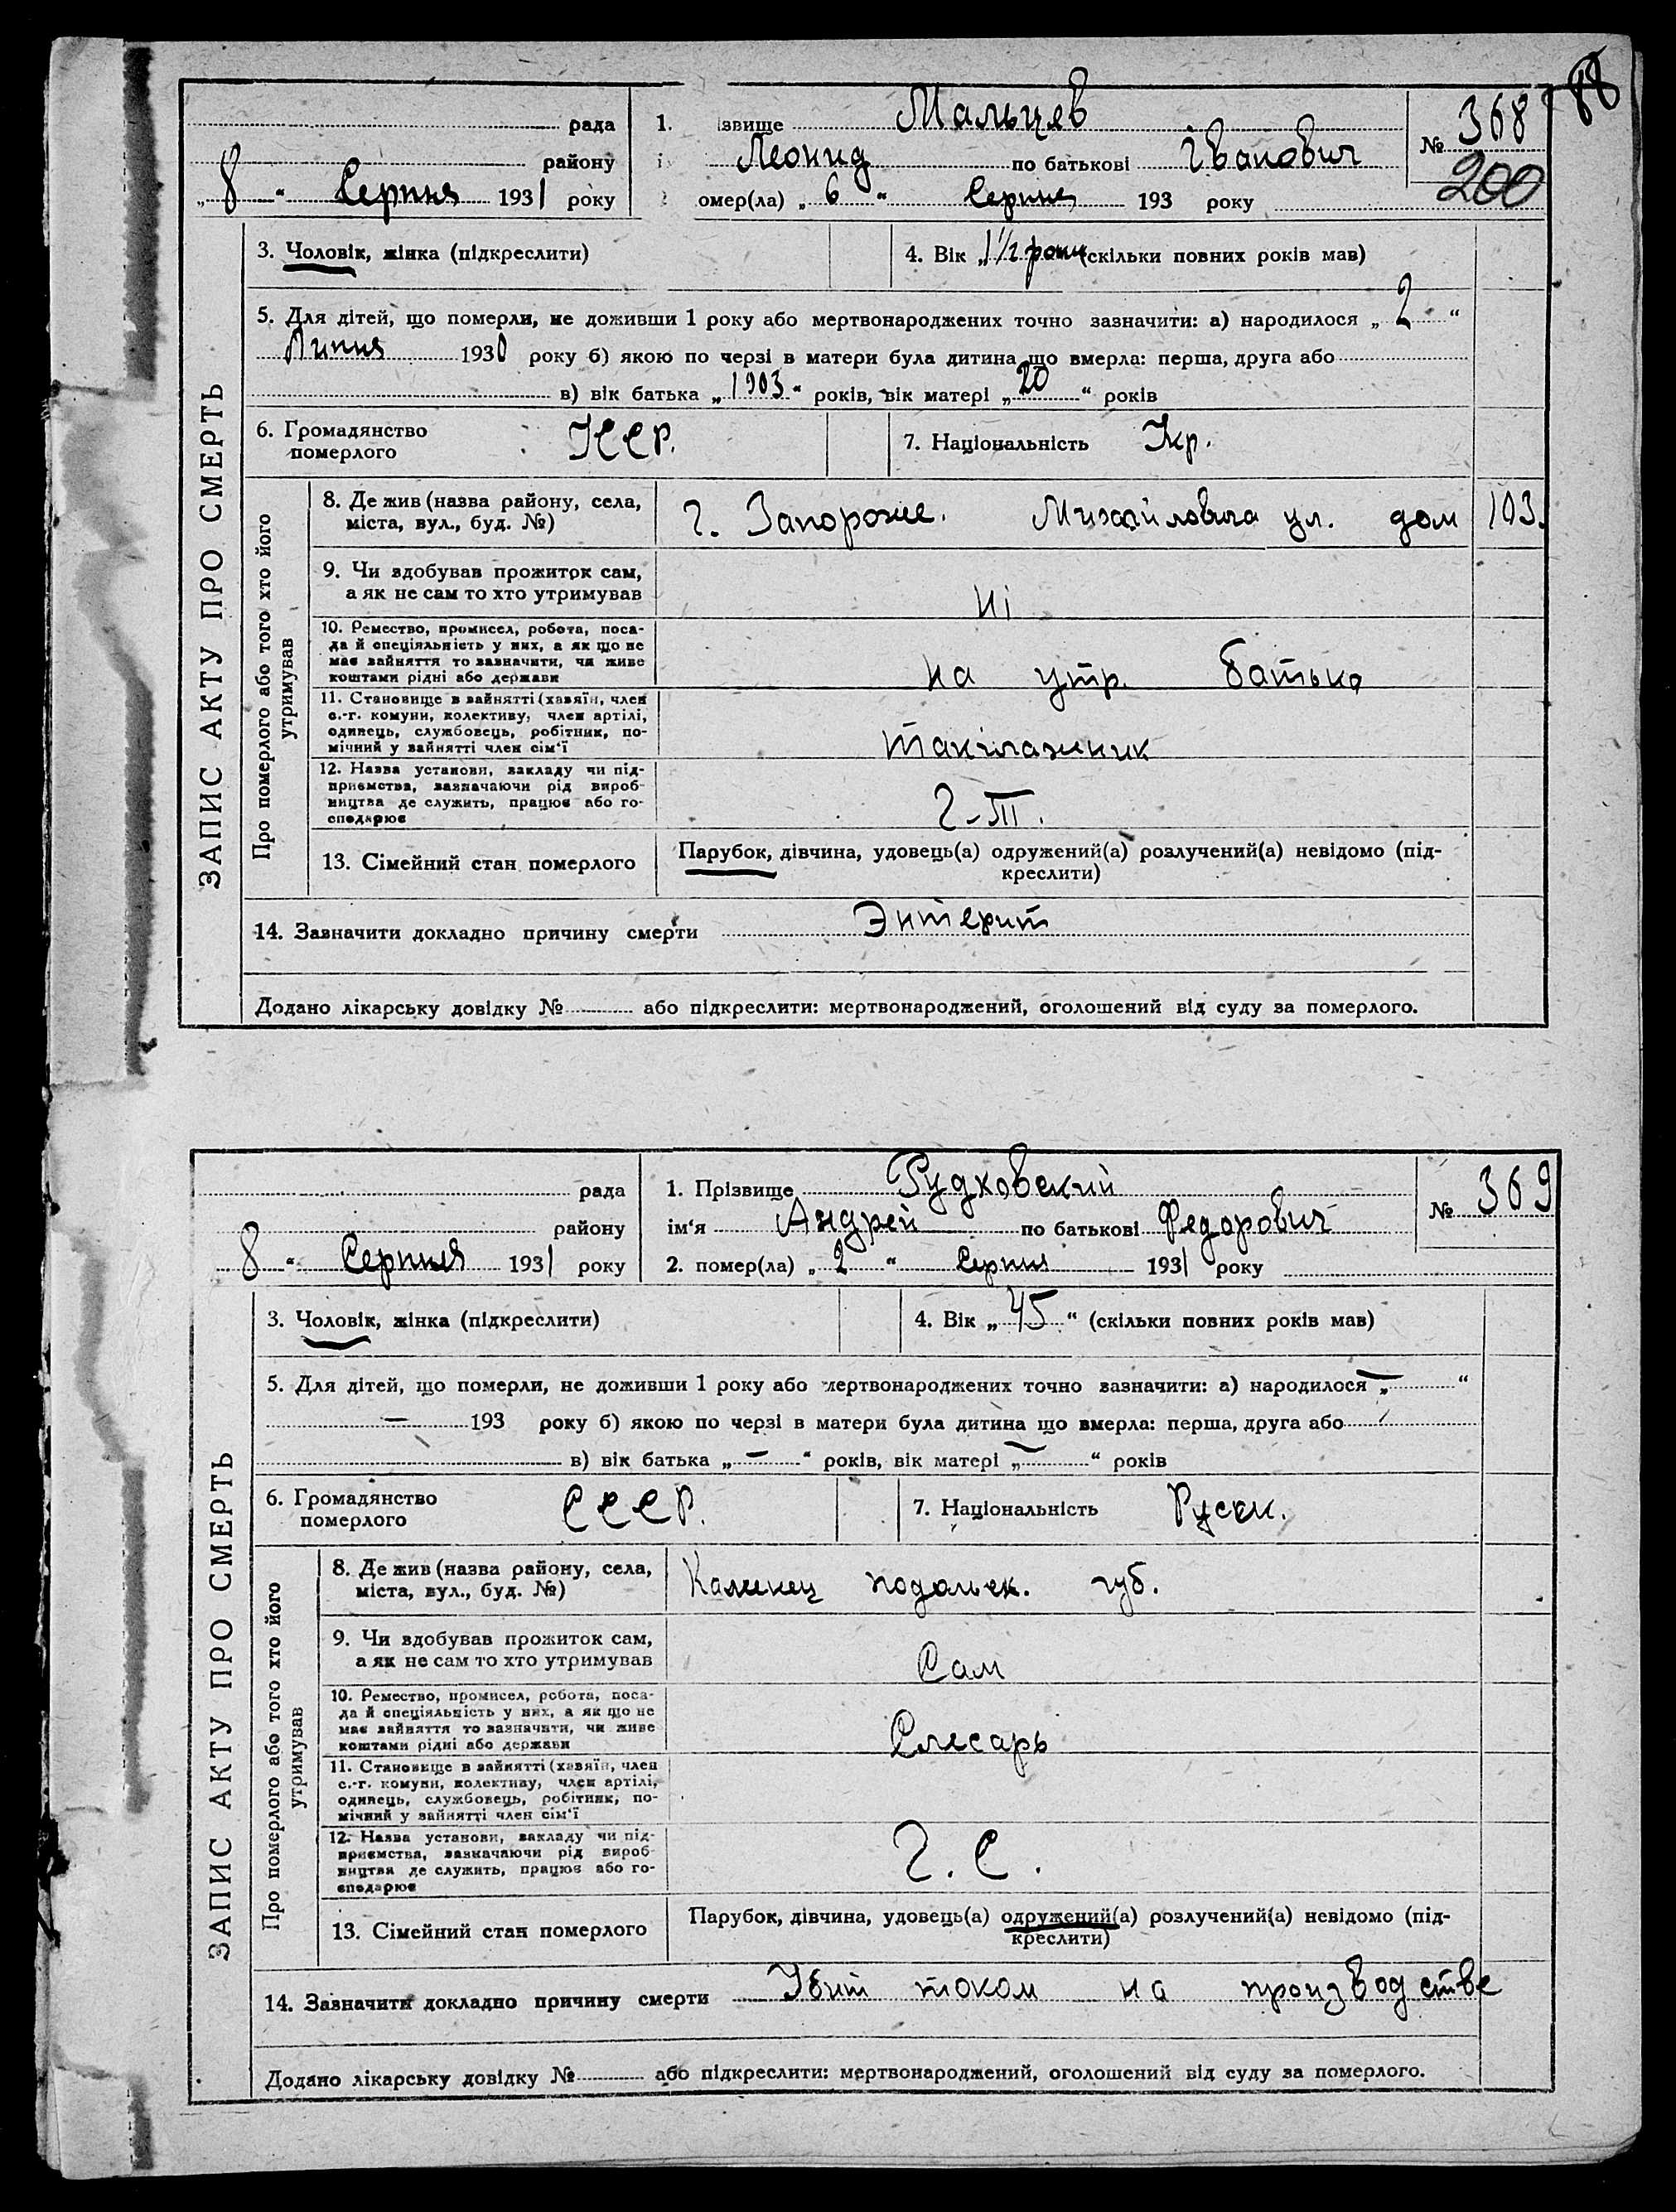 88
рада
району
„ 8 “ Серпня 1931 року
1. ізвище Мальцев
Леонид по батькові Іванович
омер(ла) „ 6 “ Серпня 193 року
№ 368
200
3. Чоловік, жінка (підкреслити)
4. Вік „ 1 1/2 роки (скільки повних років мав)
5. Для дітей, що померли, не доживши 1 року або мертвонароджених точно зазначити: а) народилося „ 2 “
Липня 1930 року б) якою по черзі в матери була дитина що вмерла: перша, друга або
в) вік батька „ 1903 “ років, вік матері „ 20 “ років
6. Громадянство
померлого
УССР.
7. Національність Укр.
ЗАПИС АКТУ ПРО СМЕРТЬ
Про померлого або того хто його
утримував
8. Де жив (назва району, села,
міста, вул., буд. №)
г. Запороже. Михайловича ул. дом 103.
9. Чи здобував прожиток сам,
а як не сам то хто утримував
Ні
10. Ремество, промисел, робота, поса-
да й спеціяльність у них, а як що не
має зайняття то зазначити, чи живе
коштами рідні або держави
на утр. батька
11. Становище в зайнятті (хазяїн, член
с.-г. комуни, колективу, член артілі,
одинець, службовець, робітник, по-
мічний у зайнятті член сім'ї
такілажник
12. Назва установи, закладу чи під-
приємства, зазначаючи рід вироб-
ництва де служить, працює або го-
сподарює
13. Сімейний стан померлого
Парубок, дівчина, удовець(а) одружений(а) розлучений(а) невідомо (під-
креслити)
14. Зазначити докладно причину смерти Энтерит
Додано лікарську довідку № або підкреслити: мертвонароджений, оголошений від суду за померлого.
рада
району
8 “ Серпня 1931 року
1. Прізвище Рудковский
ім'я Андрей по батькові Федорович
2. помер(ла) „ 2 “ Серпня 1931 року
№ 369
3. Чоловік, жінка (підкреслити)
4. Вік „ 45 “ (скільки повних років мав)
5. Для дітей, що померли, не доживши 1 року або мертвонароджених точно зазначити: а) народилося „ — “
— 193 року б) якою по черзі в матери була дитина що вмерла: перша, друга або
в) вік батька „ — “ років, вік матері „ — “ років
6. Громадянство
померлого
СССР.
7. Національність Русск.
ЗАПИС АКТУ ПРО СМЕРТЬ
Про померлого або того хто його
утримував
8. Де жив (назва району, села,
міста, вул., буд. №)
Каменец подольск. губ.
9. Чи здобував прожиток сам,
а як не сам то хто утримував
Сам
10. Ремество, промисел, робота, поса-
да й спеціяльність у них, а як що не
має зайняття то зазначити, чи живе
коштами рідні або держави
Слесарь
11. Становище в зайнятті (хазяїн, член
с.-г. комуни, колективу, член артілі,
одинець, службовець, робітник, по-
мічний у зайнятті член сім'ї
12. Назва установи, закладу чи під-
приємства, зазначаючи рід вироб-
ництва де служить, працює або го-
сподарює
Г. С.
13. Сімейний стан померлого
Парубок, дівчина, удовець(а) одружений(а) розлучений(а) невідомо (під-
креслити)
14. Зазначити докладно причину смерти Убит током на производстве
Додано лікарську довідку № або підкреслити: мертвонароджений, оголошений від суду за померлого.